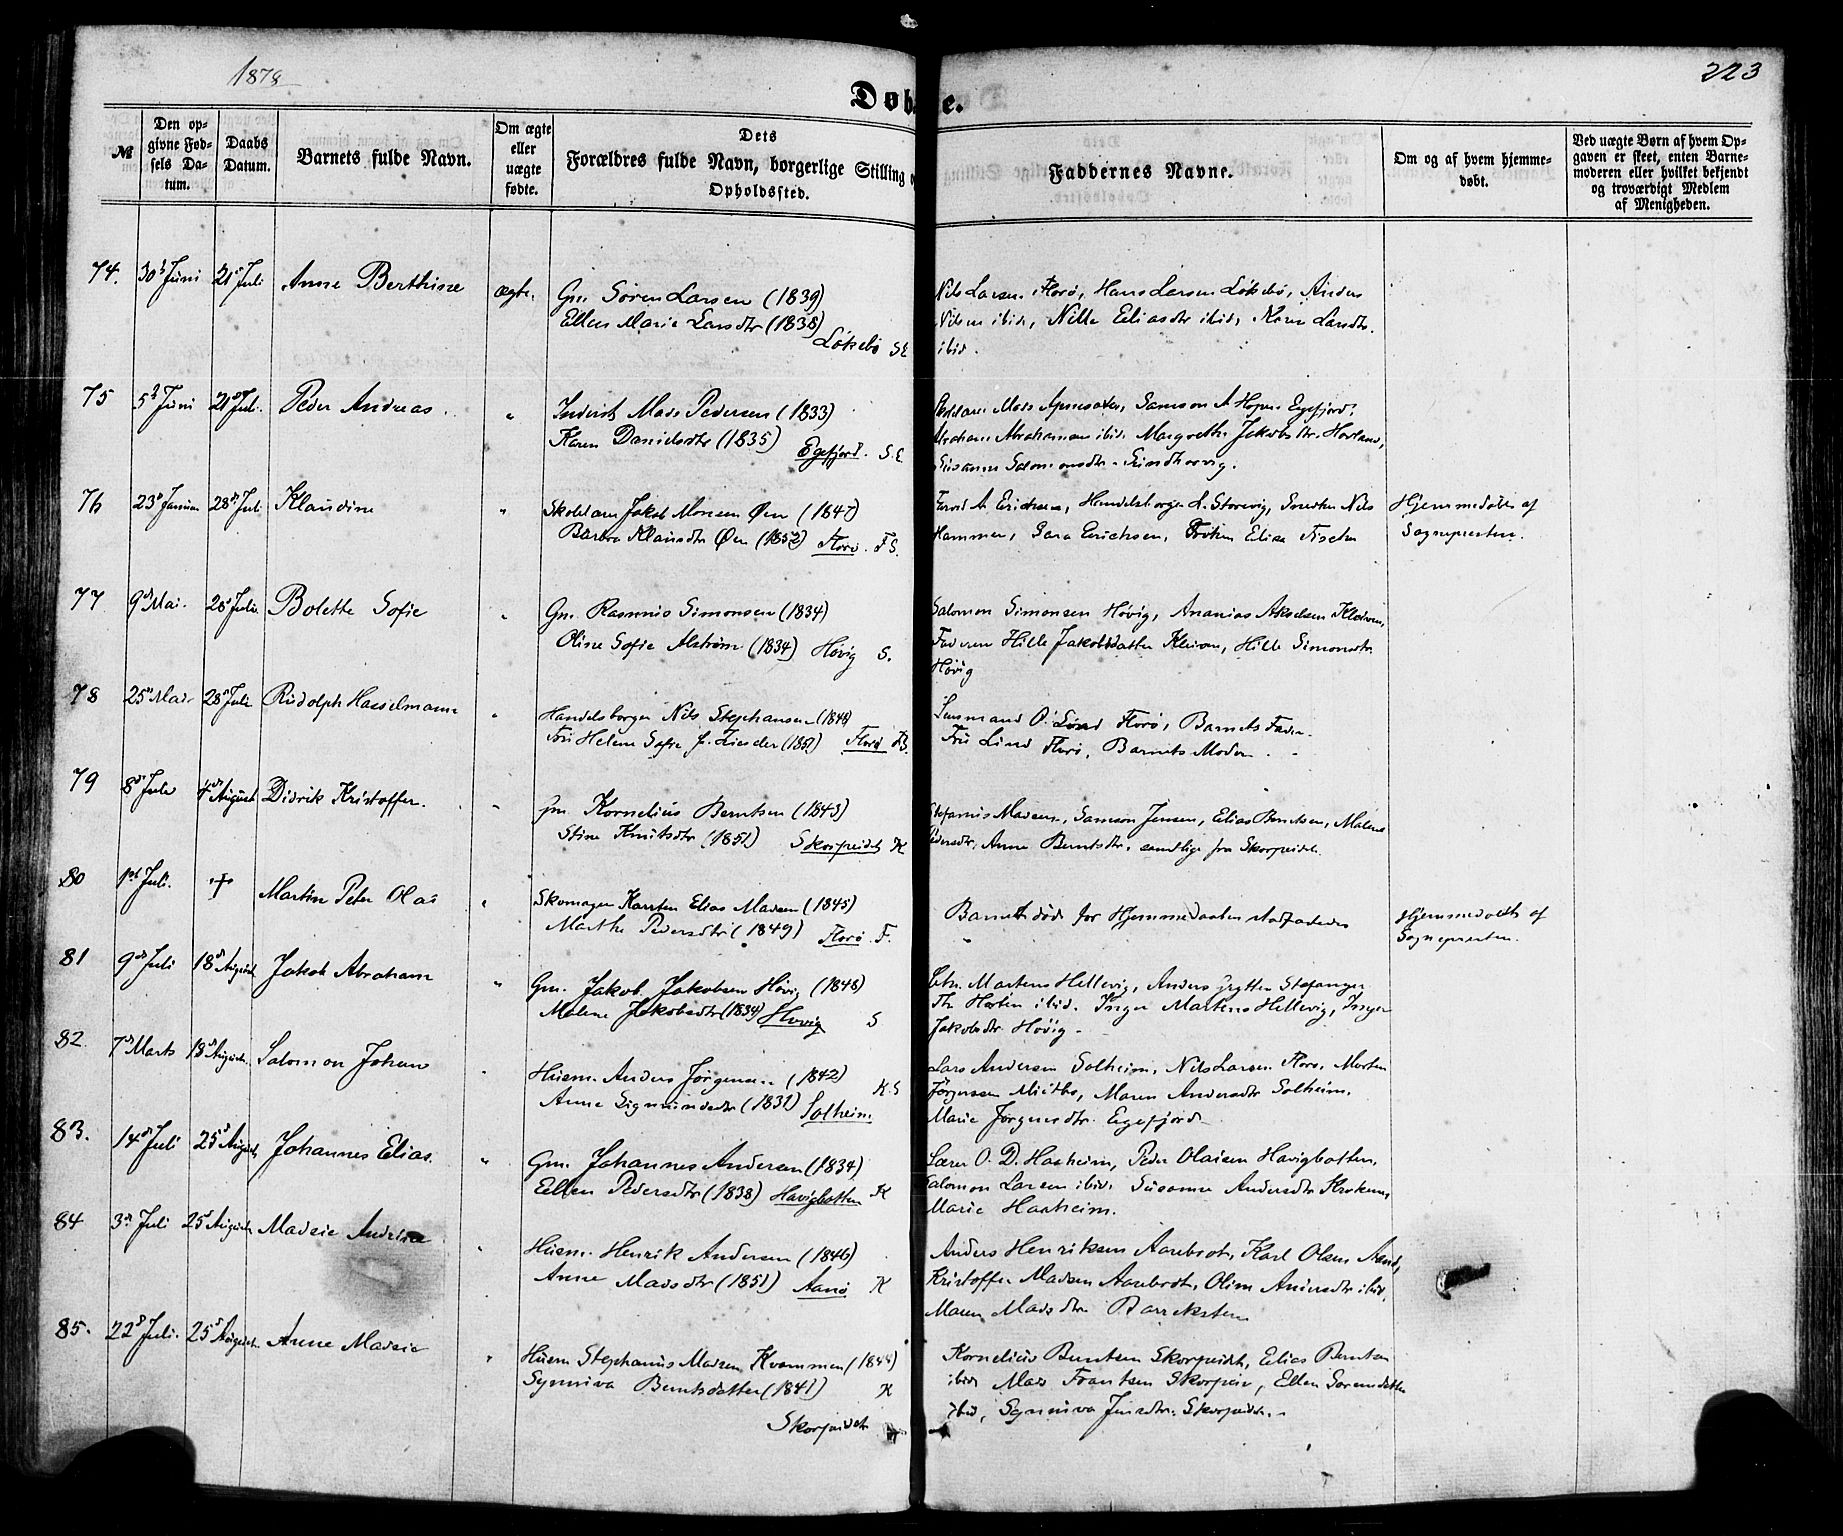 1878
223
Døbte.
№
Den opgivne Fødsels Datum.
Daabs Datum.
Barnets fulde Navn.
Om ægte eller uægte fødte.
Dets Forældres fulde Navn, borgerlige Stilling o
Opholdssted.
Faddernes Navne.
Om og af hvem hjemmedøbt.
Ved uægte Børn af hvem Opgaven er skeet, enten Barnemoderen eller hvilket bekjendt og troværdigt Medlem af Menigheden.
74. 30 Juni 21 Juli Anne Berthine ægte. Gm. Søren Larsen (1839)
Ellen Marie Larsdtr (1838)
Løkebø
Nils Larsen Florø, Hans Larsen Løkebø, Anders
Nilsen ibid, Nille Eliasdtr ibid, Larsdtr.
ibid.
75 5 Juni 21 Juli. Peder Andreas. " Mads Pedersen (1833)
Karen Danielsdtr (1835) Egefjord. S.E.
Mads Samson A Hope Egefjord,
Abraham Abrahamsen ibid. Margrethe Jakobsdtr Hovland,
Susanne Salomonsdtr
76 23 Januar 28 Juli Klaudine " Jakob Monsen Øen (1847)
Barbro Klausdtr Øen (1852) Florø. F S.
A Erichsen, Handelsborger Storevig, Nils
Hammer, Sara Erichsen, Frøken Elisa Fischer
Hjemmedøbt af
Sognepresten.
77 9 Mai. 28 Juli Bolette Sofie " Gm. Rasmus Simonsen (1834)
Oline Sofie (1834) Høvig S.
Salomon Simonsen Høvig, Ananias Akselsen
Hille Jakobsdatter Hille Simonsdtr
Høvig
78 25 Mai 28 Juli Rudolph Hasselmann " Handelsborger Nils Stephansen (1848)
Fru Helene Sofie f. (1851) Florø
Lensmand O. Lind Florø, Barnets Fader.
Fru Lind Florø, Barnets Moder
79 8 Juli 4 August Didrik Kristoffer. " Gm Kornelius Berntsen (1843)
Stine Knutsdtr (1851) Skorpeidet K
Stefanus Madsen, Samson Jensen, Elias Berntsen, Malene
Pedersdtr, Anne Berntsdtr, samtlige fra Skorpeidet.
80 1 Juli. + Martin Peter Olas " Skomager Karsten Elias Madsen (1845)
Marthe Pedersdtr (1849) Florø. F.
Barnet døde før
Hjemmedøbt af
Sognepresten.
81 9 Juli 18 August Jakob Abraham " Gm. Jakob Jakobsen Høvig (1848)
Malene Jakobsdtr (1834) Høvig S
Martens Hellevig, Anders Stefanger
ibid. Inger Martens Hellevig, Inger
Jakobsdtr Høvig
82. 7 Marts 18 August Salomon Johan " Husm. Anders Jørgensen (1842) K.S
Anne Sigmundsdtr (1831) Solheim
Lars Andersen Solheim, Nils Larsen Florø, Morten
Jørgensen Maren Andersdtr Solheim,
Marie Jørgensdtr Egefjord
83. 14 Juli 25 August Johannes Elias. " Gm. Johannes Andersen (1834)
Ellen Pedersdtr (1838) Havigbotten K
Lærer O. D. Haaheim, Peder Olaisen Havigbotten,
Salomon Larsen ibid. Susanne Andersdtr
Marie Haaheim.
84 3 Juli 25 August Madsie Andrine " Husm. Henrik Andersen (1846)
Anne Madsdtr (1851) Aarø K
Anders Henriksen Aarebrot, Karl Olsen
Kristoffer Madsen Aarebrot, Oline Andersdtr ibid,
Maren Madsdtr Barreksten
85. 22 Juli. 25 August Anne Madsie " Husm Stephanus Madsen Kvammen (1844)
Synniva Berntsdatter (1841) K
Skorpeidet
Kornelius Berntsen Skorpeidet, Elias Berntsen
ibid Mads Frantsen Skorpen, Ellen Sørensdatter
ibid, Synniva Jensdtr Skorpeidet.